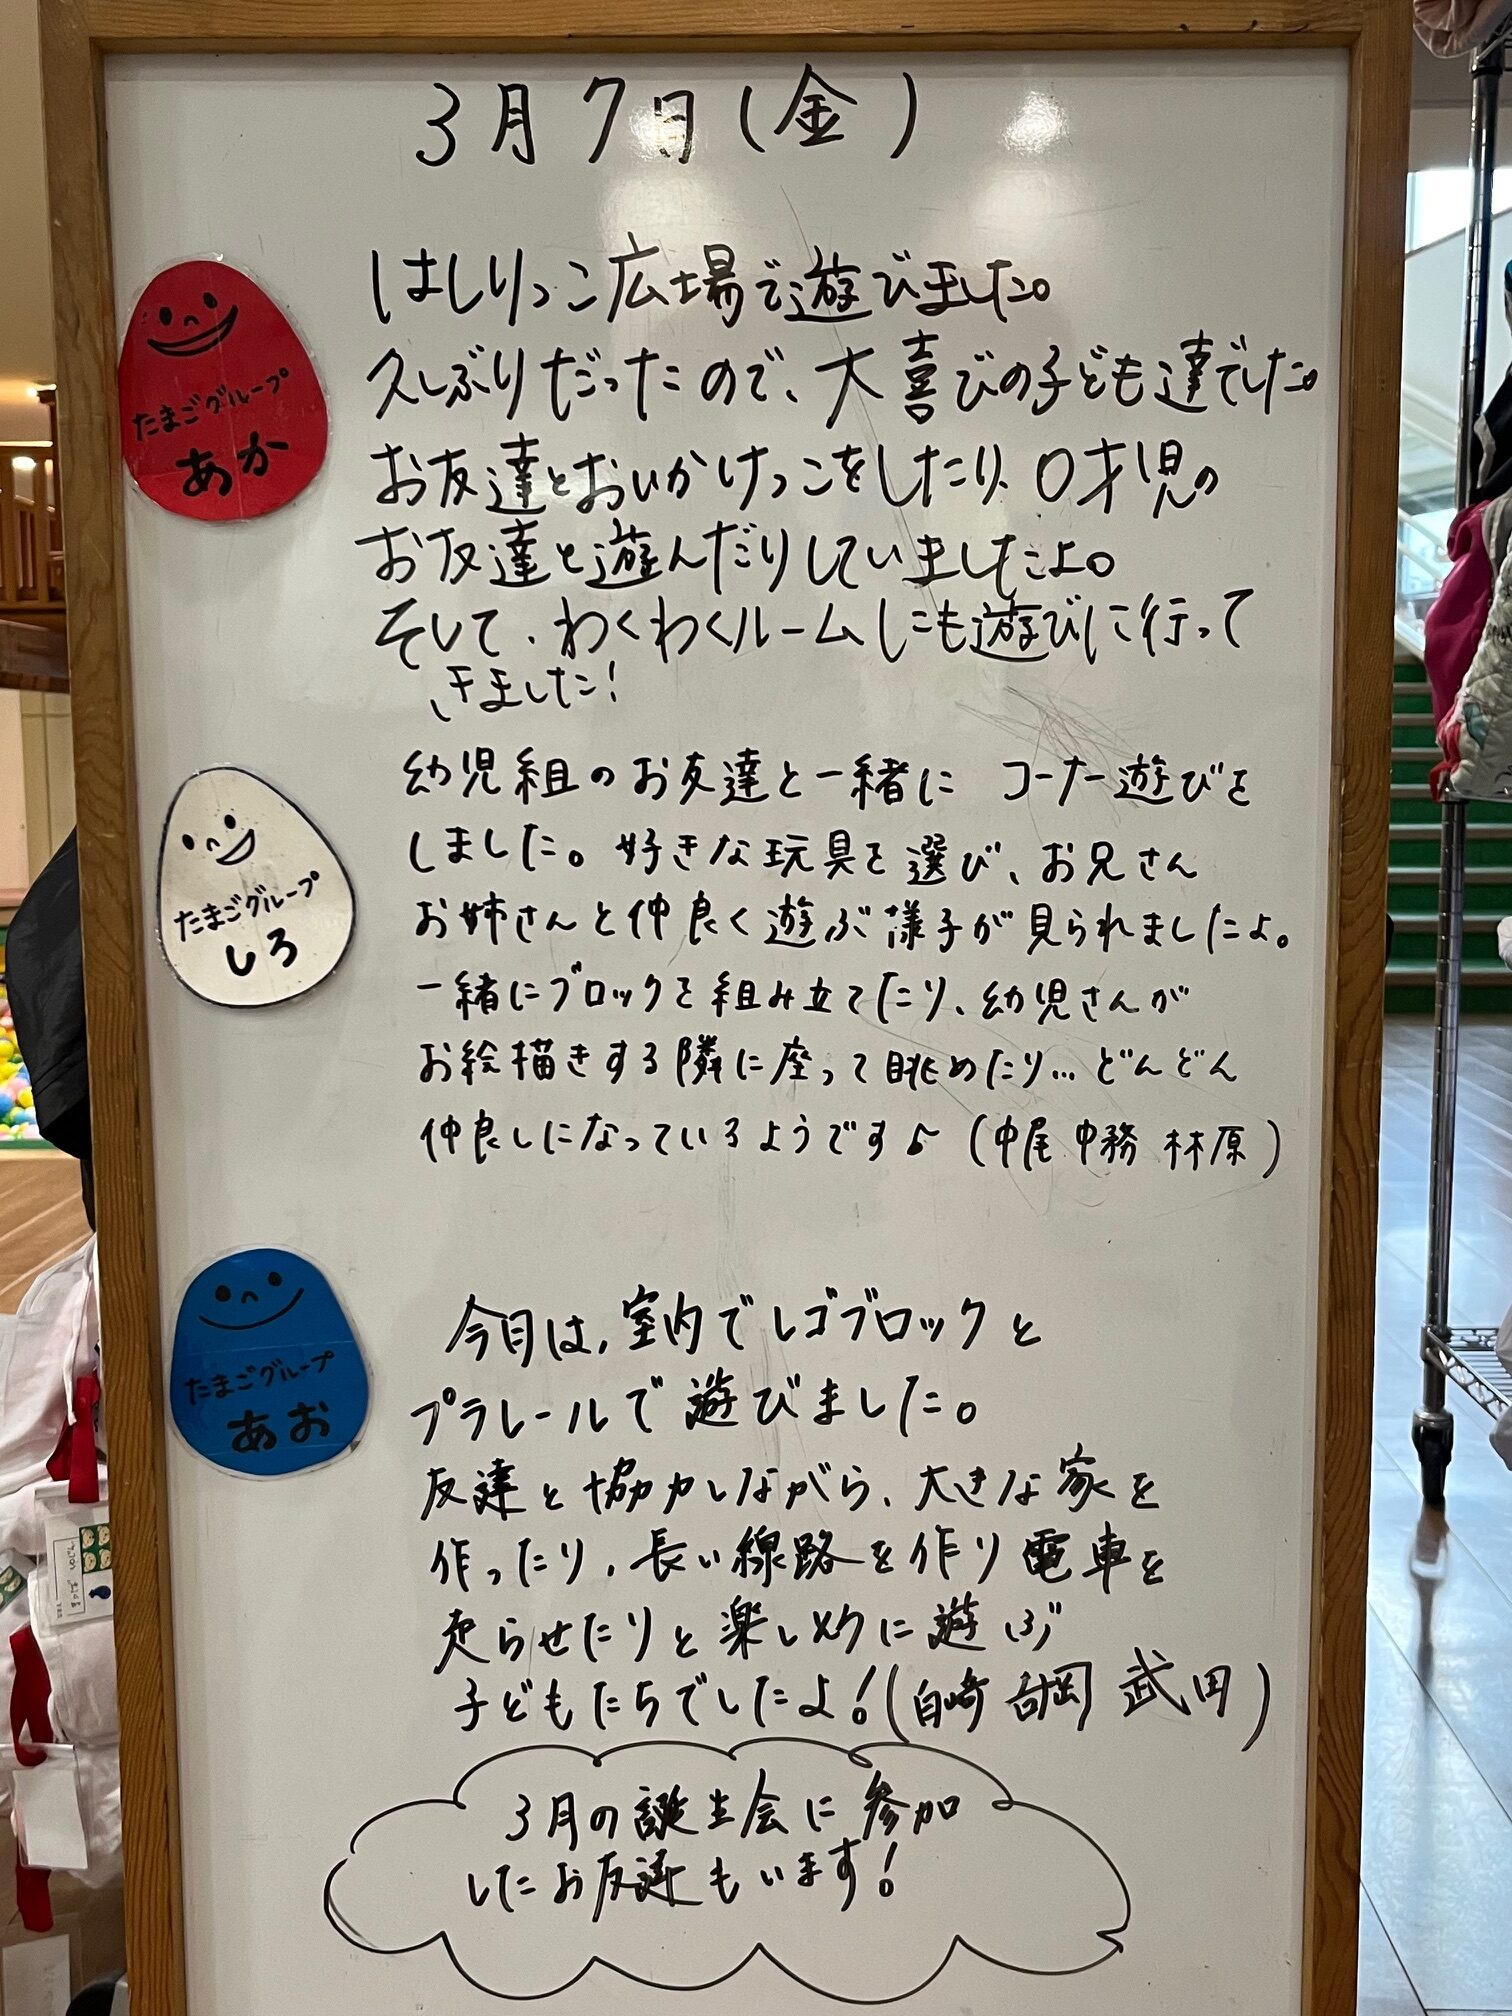 3月7日(金)
たまごグループ
あか
はしりっこ広場で遊びました。
久しぶりだったので、大喜びの子ども達でした。
お友達とおいかけっこをしたり、0才児の
お友達と遊んだりしていましたよ。
そして、わくわくルームにも遊びに行って
きました!
たまごグループ
しろ
幼児組のお友達と一緒に コーナー遊びを
しました。好きな玩具を選び、お兄さん
お姉さんと仲良く遊ぶ様子が見られましたよ。
一緒にブロックを組み立てたり、幼児さんが
お絵描きする隣に座って眺めたり…どんどん
仲良しになっているようです♪(中尾 中務 林原)
たまごグループ
あお
今日は、室内でレゴブロックと
プラレールで遊びました。
友達と協力しながら、大きな家を
作ったり、長い線路を作り電車を
走らせたりと楽しめに遊ぶ
子どもたちでしたよ!(白崎 武田)
3月の誕生会に参加
したお友達もいます!